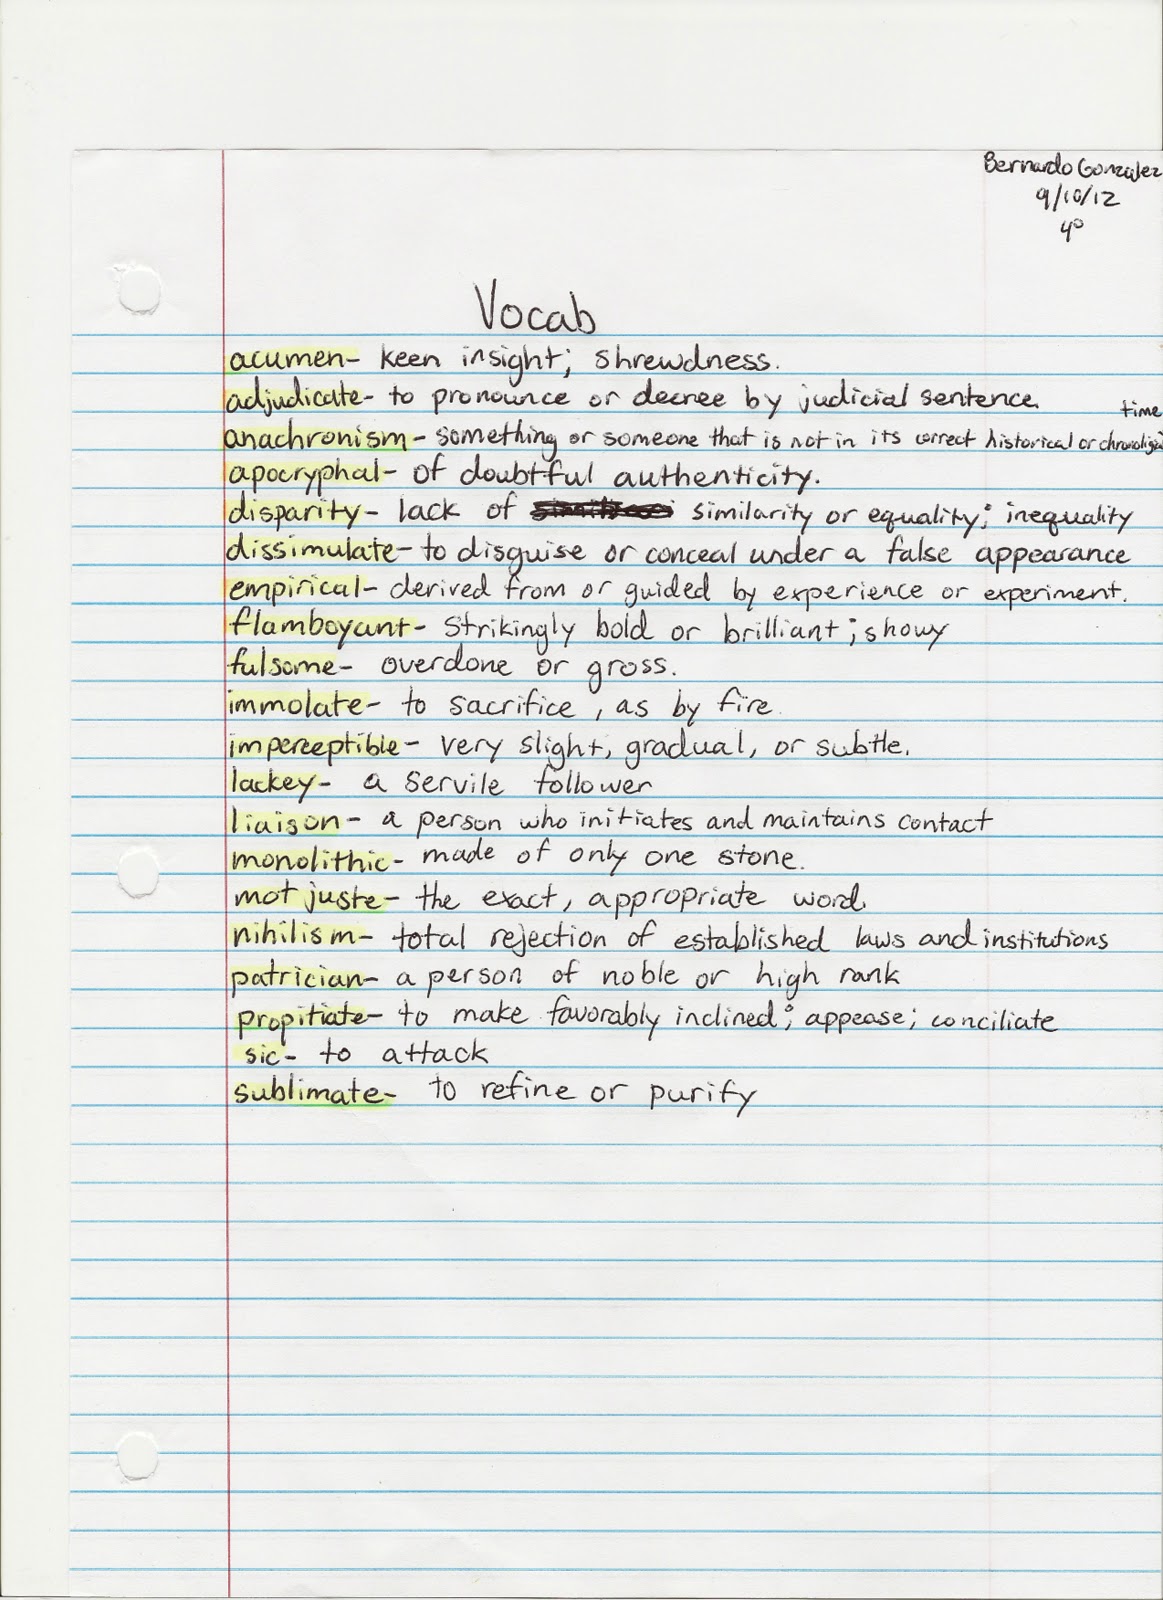 Bernardo Gonzalez
9/10/12
4°
Vocab
acumen- keen insight; shrewdness.
adjudicate- to pronounce or decree by judicial sentence.
time
anachronism- something or someone that is not in its correct historical or chronological
apocryphal- of doubtful authenticity.
disparity- lack of similarity or equality; inequality
dissimulate- to disguise or conceal under a false appearance
empirical- derived from or guided by experience or experiment.
flamboyant- strikingly bold or brilliant; showy
fulsome- overdone or gross.
immolate- to sacrifice, as by fire.
imperceptible- very slight, gradual, or subtle.
lackey- a servile follower
liaison- a person who initiates and maintains contact
monolithic- made of only one stone.
mot juste- the exact, appropriate word.
nihilism- total rejection of established laws and institutions
patrician- a person of noble or high rank
propitiate- to make favorably inclined; appease; conciliate
sic- to attack
sublimate- to refine or purify